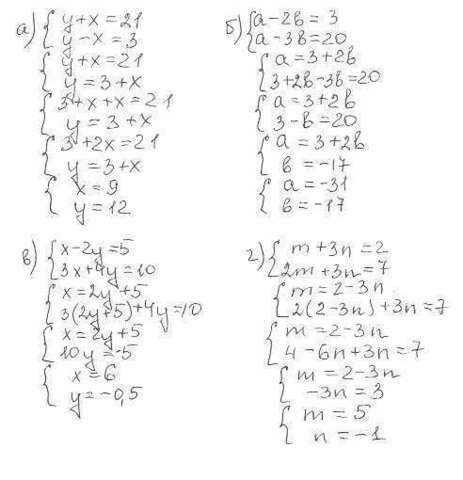 а) { y+x=21
y-x=3
{ y+x=21
y=3+x
{ 3+x+x=21
y=3+x
{ 3+2x=21
y=3+x
{ x=9
y=12
б) { a-2b=3
a-3b=20
{ a=3+2b
3+2b-3b=20
{ a=3+2b
3-b=20
{ a=3+2b
b=-17
{ a=-31
b=-17
в) { x-2y=5
3x+4y=10
{ x=2y+5
3(2y+5)+4y=10
{ x=2y+5
10y=-5
{ x=6
y=-0,5
г) { m+3n=2
2m+3n=7
{ m=2-3n
2(2-3n)+3n=7
{ m=2-3n
4-6n+3n=7
{ m=2-3n
-3n=3
{ m=5
n=-1